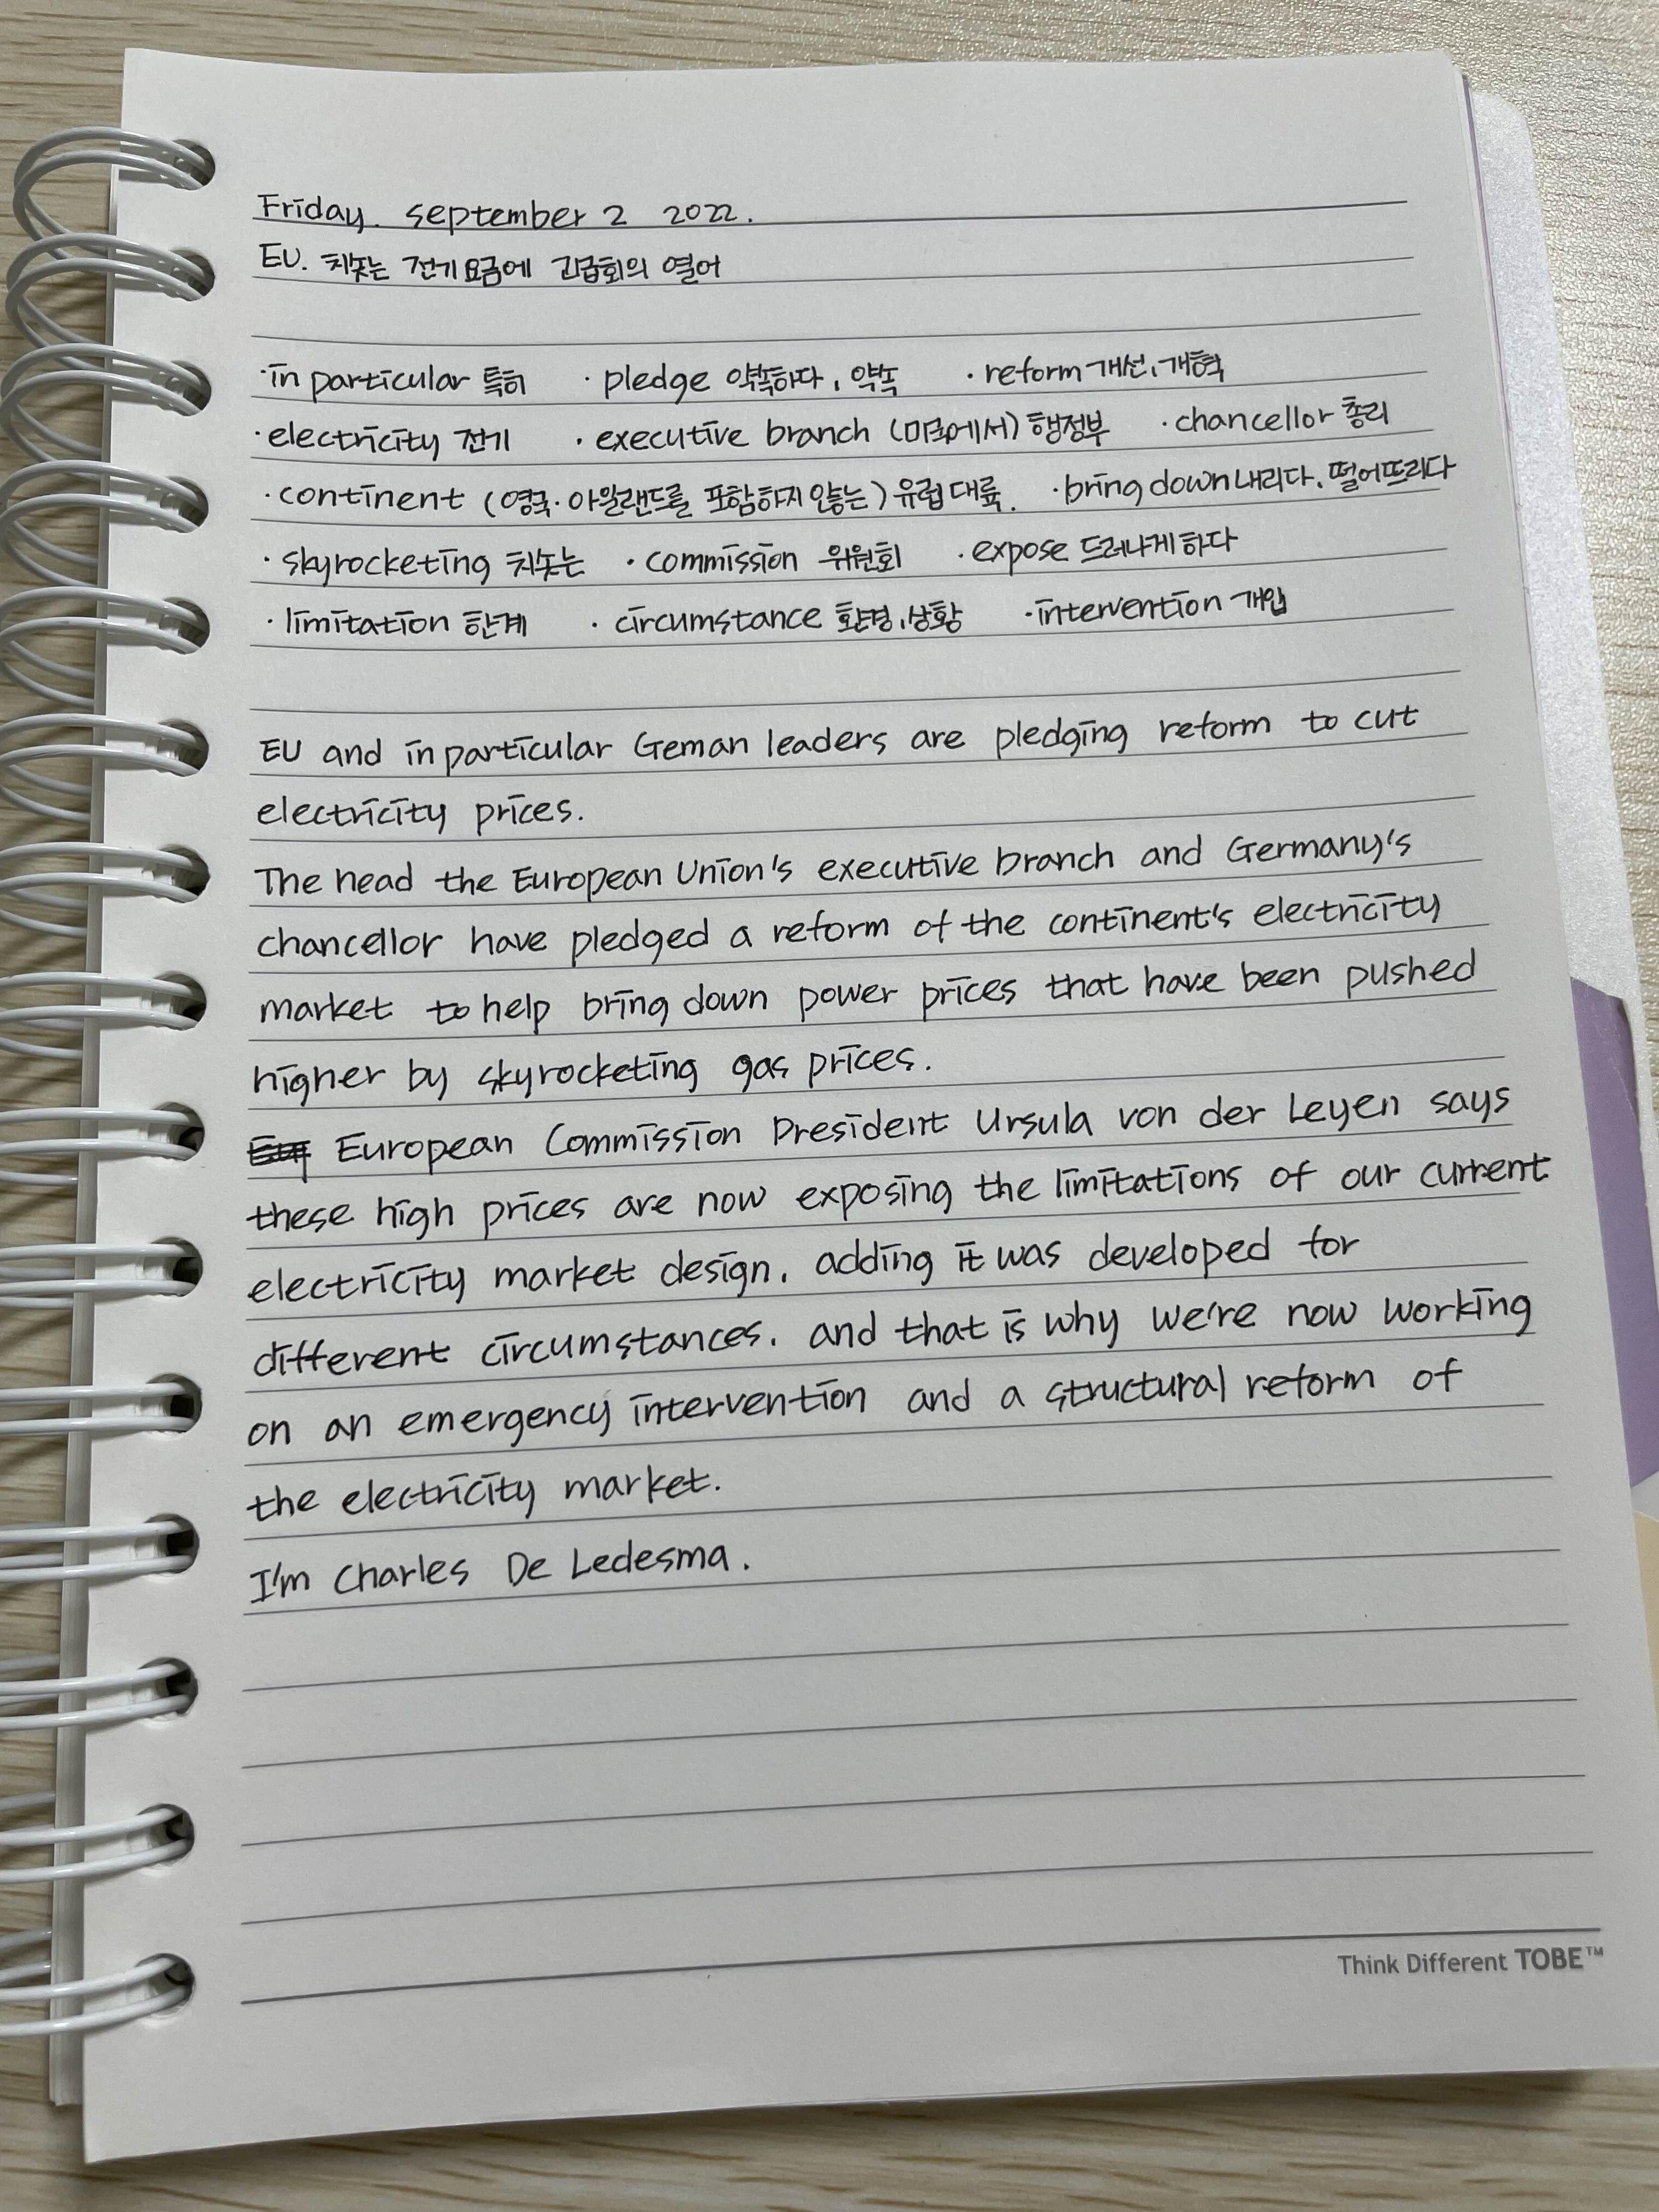 Friday. september 2 2022.
EU. 치솟는 전기요금에 긴급회의 열어
·in particular 특히 · pledge 약속하다, 약속 · reform 개선, 개혁
·electricity 전기 · executive branch (미국에서) 행정부 · chancellor 총리
· continent (영국·아일랜드를 포함하지 않는) 유럽 대륙. · bring down 내리다, 떨어뜨리다
· skyrocketing 치솟는 · commission 위원회 · expose 드러나게 하다
· limitation 한계 · circumstance 환경, 상황 · intervention 개입
EU and in particular Geman leaders are pledging reform to cut
electricity prices.
The head the European Union's executive branch and Germany's
chancellor have pledged a reform of the continent's electricity
market to help bring down power prices that have been pushed
higher by skyrocketing gas prices.
European Commission President Ursula von der Leyen says
these high prices are now exposing the limitations of our current
electricity market design, adding it was developed for
different circumstances. and that is why we're now working
on an emergency intervention and a structural reform of
the electricity market.
I'm Charles De Ledesma.
Think Different TOBE™